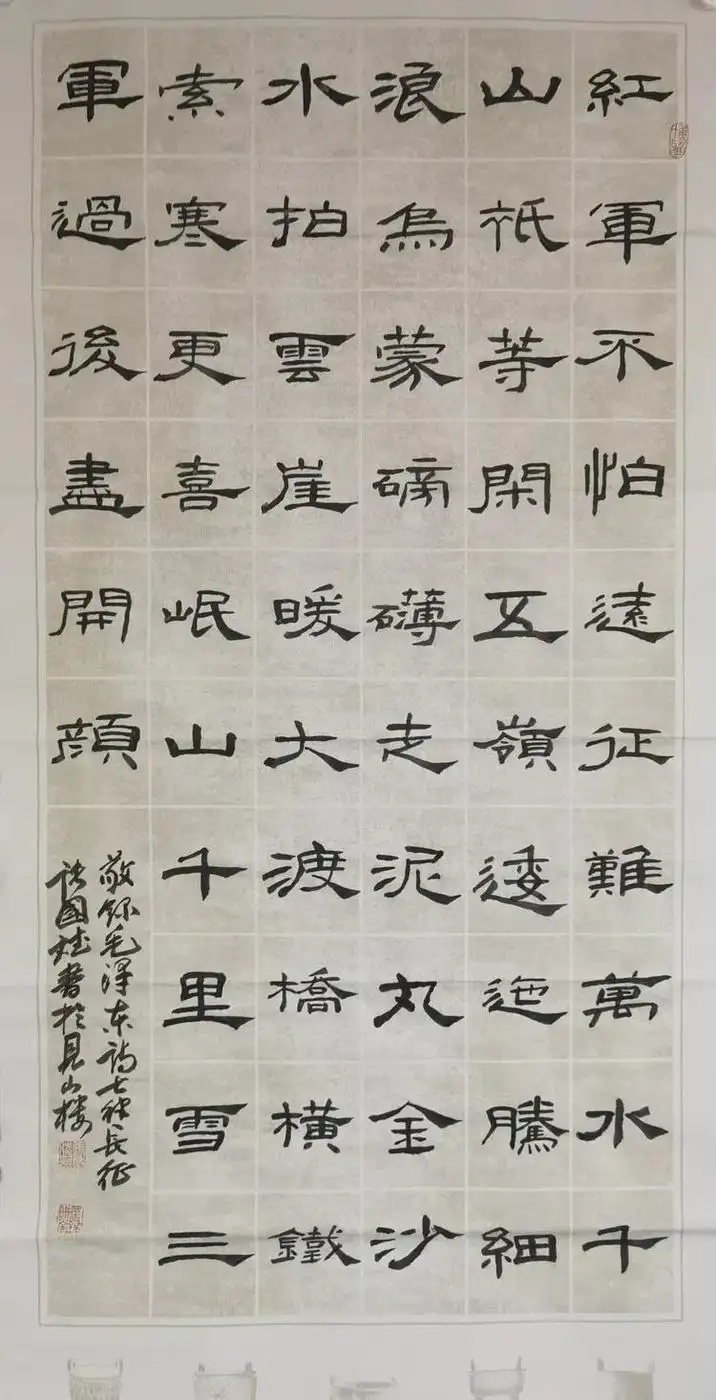 紅軍不怕遠征難萬水千
山祇等閑五嶺逶迤騰細
浪烏蒙磅礴走泥丸金沙
水拍雲崖暖大渡橋橫鐵
索寒更喜岷山千里雪三
軍過後盡開顔
敬録毛泽东詩七律长征
國書於見山樓